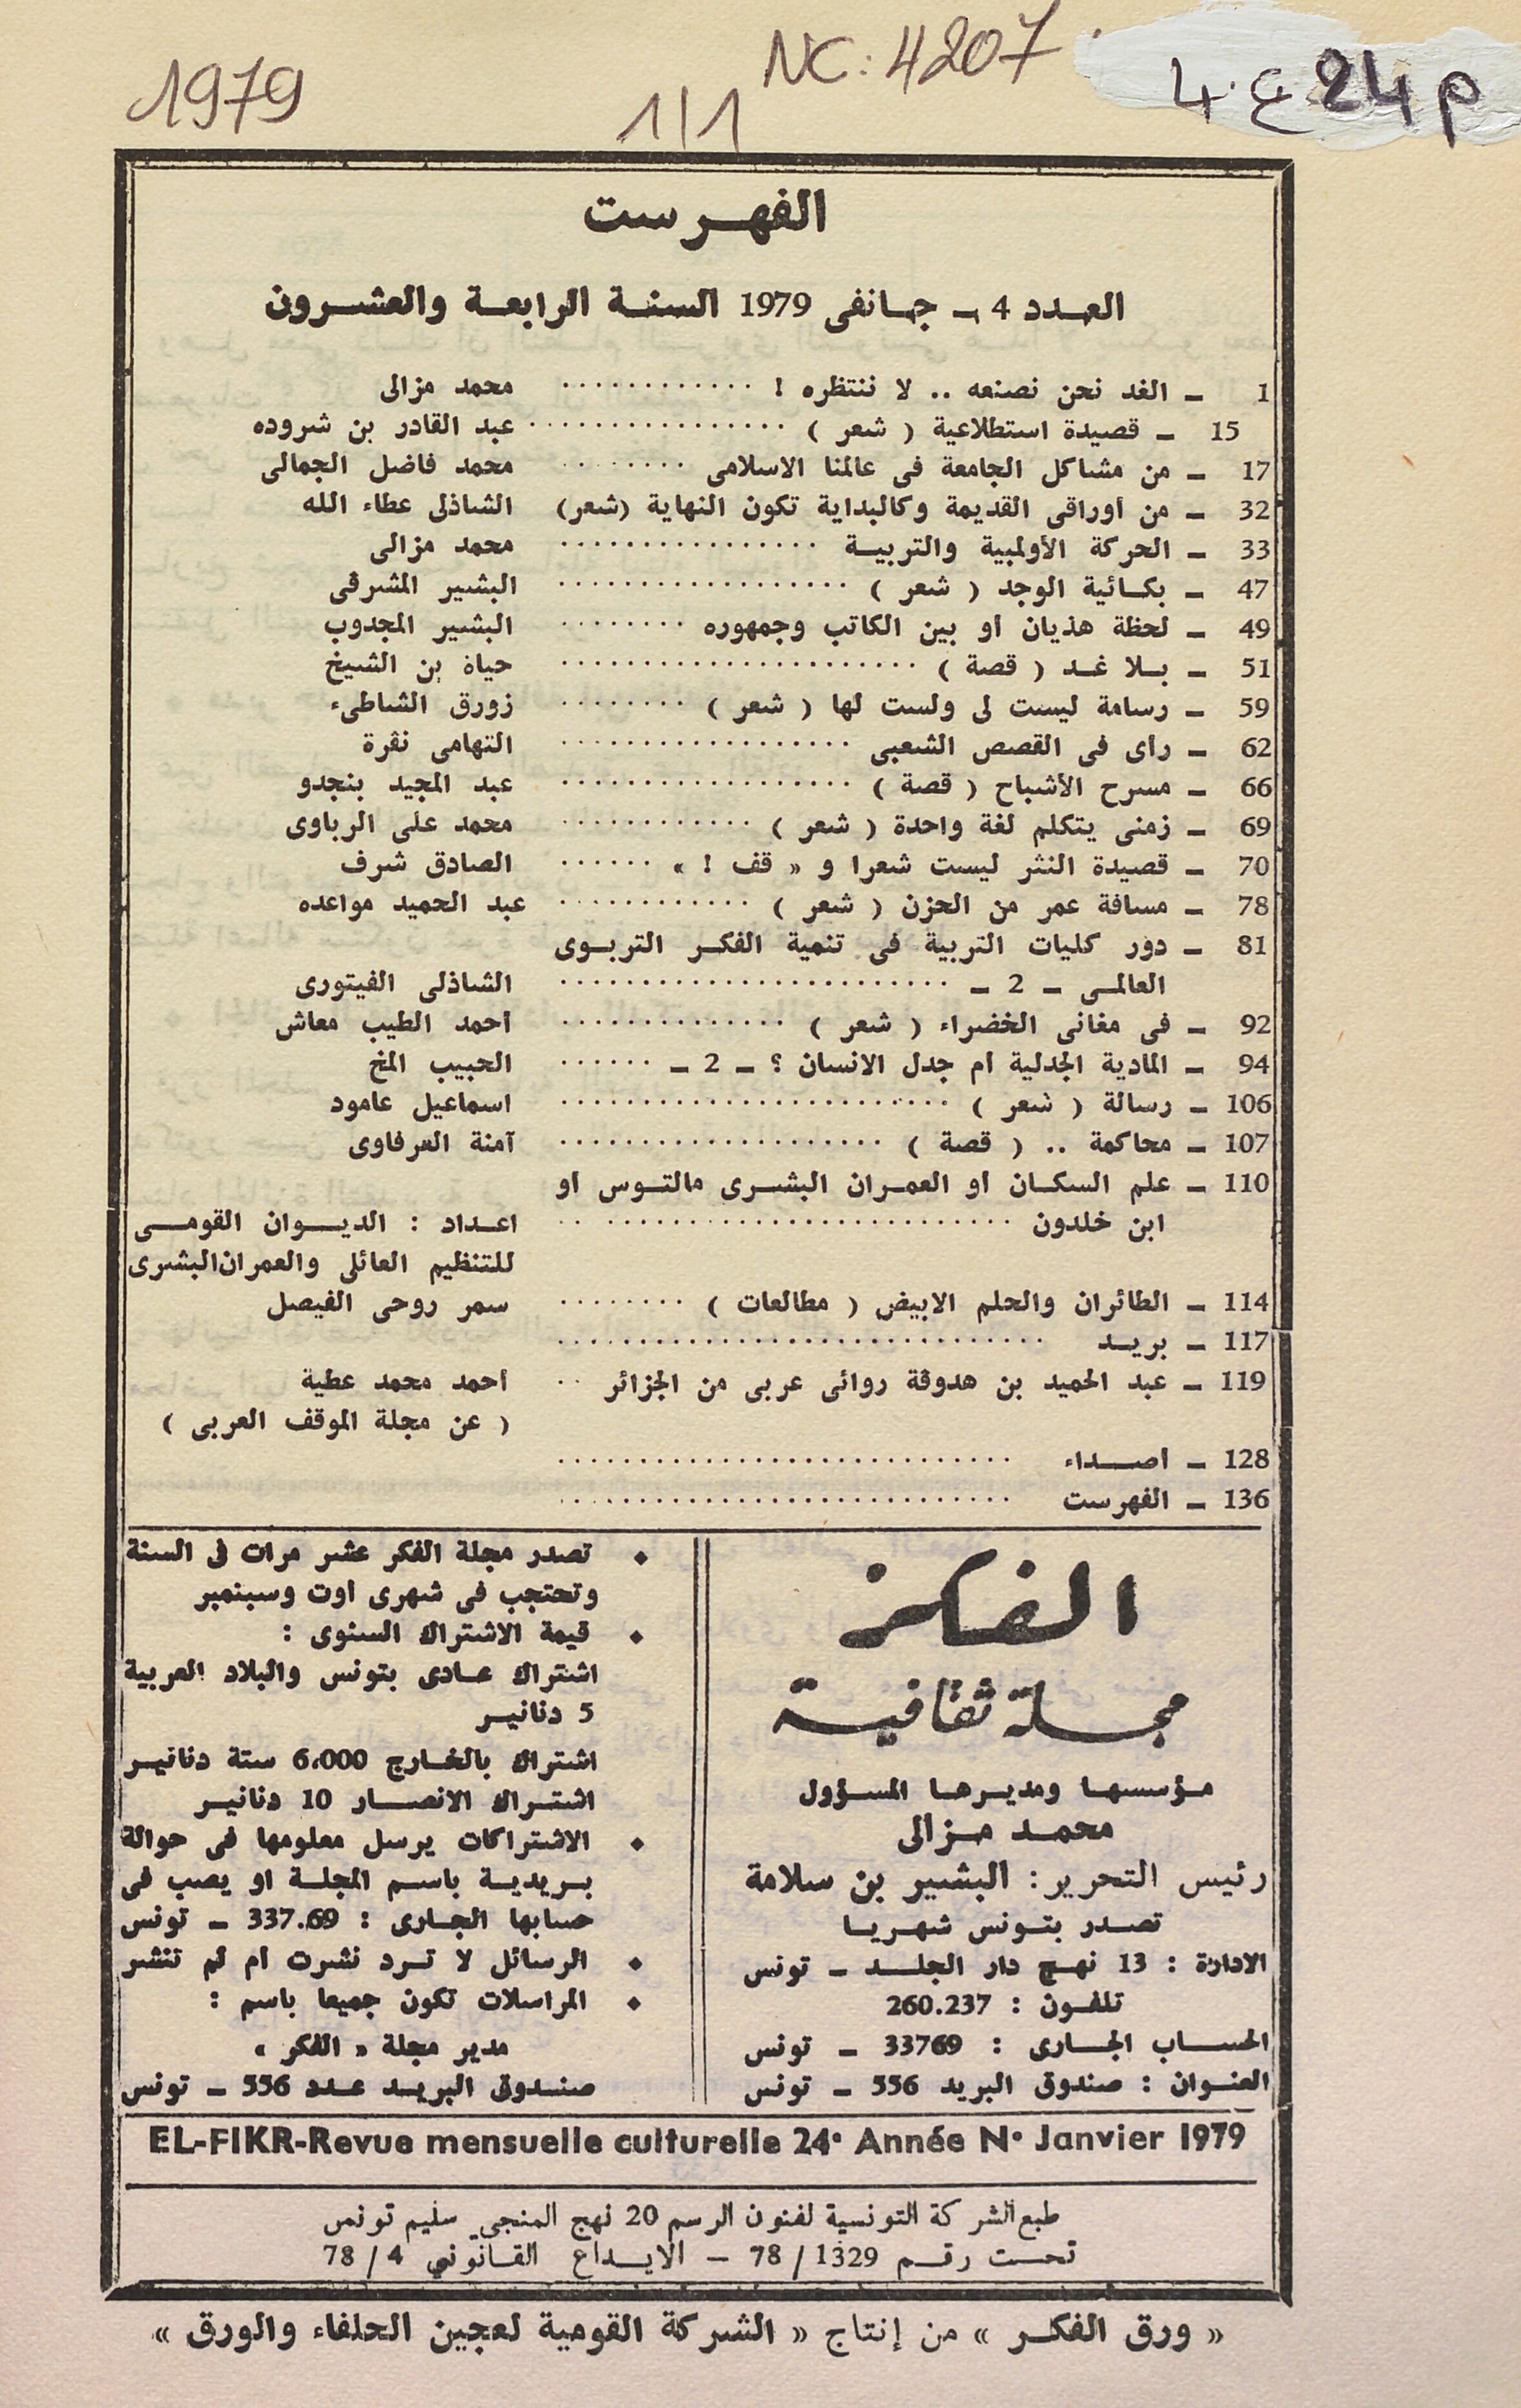 NC: 4207
1979
1/1
4.ع 24 م
الفهرست
العدد 4 ـ جانفى 1979 السنة الرابعة والعشرون
1 ـ الغد نحن نصنعه .. لا ننتظره ! ............ محمد مزالى
15 ـ قصيدة استطلاعية ( شعر ) ................ عبد القادر بن شروده
17 ـ من مشاكل الجامعة فى عالمنا الاسلامى ........ محمد فاضل الجمالى
32 ـ من أوراقى القديمة وكالبداية تكون النهاية (شعر) الشاذلى عطاء الله
33 ـ الحركة الأولمبية والتربية ................ محمد مزالى
47 ـ بكائية الوجد ( شعر ) .................. البشير المشرقى
49 ـ لحظة هذيان أو بين الكاتب وجمهوره ........ البشير المجدوب
51 ـ بلا غد ( قصة ) ...................... حياة بن الشيخ
59 ـ رسامة ليست لى ولست لها ( شعر ) ........ زورق الشاطىء
62 ـ رأى فى القصص الشعبى .................. التهامى نقرة
66 ـ مسرح الأشباح ( قصة ) .................. عبد المجيد بنجدو
69 ـ زمنى يتكلم لغة واحدة ( شعر ) ............ محمد على الرباوى
70 ـ قصيدة النثر ليست شعرا و « قف ! » ...... الصادق شرف
78 ـ مسافة عمر من الحزن ( شعر ) ............ عبد الحميد مواعده
81 ـ دور كليات التربية فى تنمية الفكر التربوى
العالمى ـ 2 ـ ........................ الشاذلى الفيتورى
92 ـ فى مغانى الخضراء ( شعر ) .............. أحمد الطيب معاش
94 ـ المادية الجدلية أم جدل الانسان ؟ ـ 2 ـ ...... الحبيب المخ
106 ـ رسالة ( شعر ) ........................ اسماعيل عامود
107 ـ محاكمة .. ( قصة ) .................... آمنة العرفاوى
110 ـ علم السكان أو العمران البشرى مالتوس أو
ابن خلدون ......................... .. اعداد : الديوان القومى
للتنظيم العائلى والعمران البشرى
114 ـ الطائران والحلم الابيض ( مطالعات ) ........ سمر روحى الفيصل
117 ـ بريد ..............................
119 ـ عبد الحميد بن هدوقة روائى عربى من الجزائر .. أحمد محمد عطية
( عن مجلة الموقف العربى )
128 ـ أصداء ............................
136 ـ الفهرست ............................
الفكر
مجلة ثقافية
مؤسسها ومديرها المسؤول
محمد مزالى
رئيس التحرير : البشير بن سلامة
تصدر بتونس شهريا
الادارة : 13 نهج دار الجلد ـ تونس
تلفون : 260.237
الحساب الجارى : 33769 ـ تونس
العنوان : صندوق البريد 556 ـ تونس
• تصدر مجلة الفكر عشر مرات فى السنة
وتحتجب فى شهرى اوت وسبتمبر
• قيمة الاشتراك السنوى :
اشتراك عادى بتونس والبلاد العربية
5 دنانير
اشتراك بالخارج 6،000 ستة دنانير
اشتراك الانصار 10 دنانير
• الاشتراكات يرسل معلومها فى حوالة
بريدية باسم المجلة او يصب فى
حسابها الجارى : 337.69 ـ تونس
• الرسائل لا ترد نشرت ام لم تنشر
• المراسلات تكون جميعا باسم :
مدير مجلة « الفكر »
صندوق البريد عدد 556 ـ تونس
EL-FIKR-Revue mensuelle culturelle 24e Année N° Janvier 1979
طبع الشركة التونسية لفنون الرسم 20 نهج المنجي سليم تونس
تحت رقم 1329 / 78 — الايداع القانوني 4 / 78
« ورق الفكر » من إنتاج « الشركة القومية لعجين الحلفاء والورق »